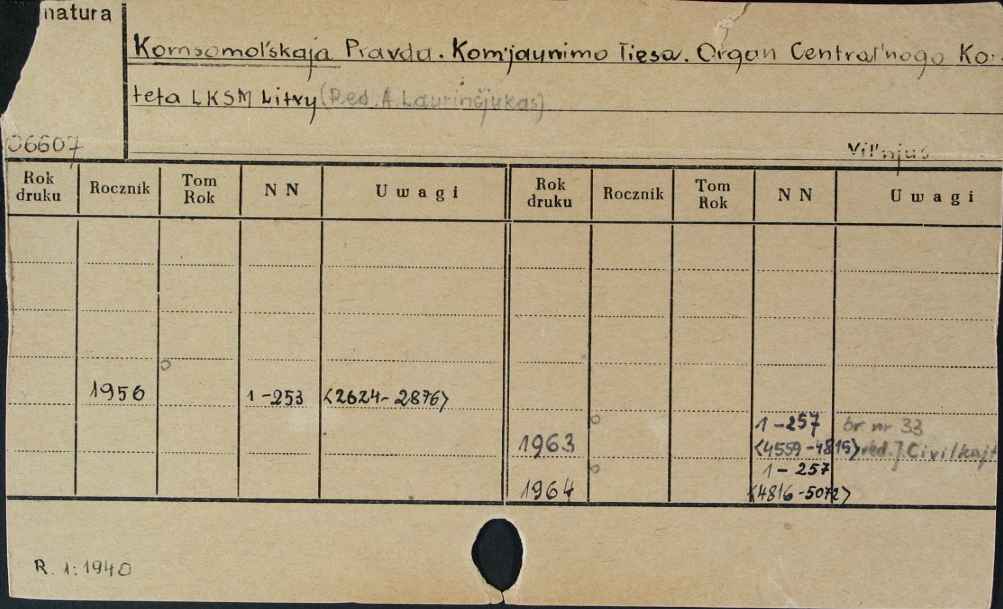 natura
Komsomol'skaja Pravda. Komjaunimo Tiesa. Organ Central'nogo Ko-
teta LKSM Litvy (Red. A. Laurinčjukas)
06607
Vil'njus
Rok druku Rocznik Tom Rok NN Uwagi Rok druku Rocznik Tom Rok NN Uwagi
1956 1-253 <2624-2876>
1-257 br nr 33
1963 <4559-4815> red. J. Civilkajt
1-257
1964 <4816-5072>
R. 1:1940